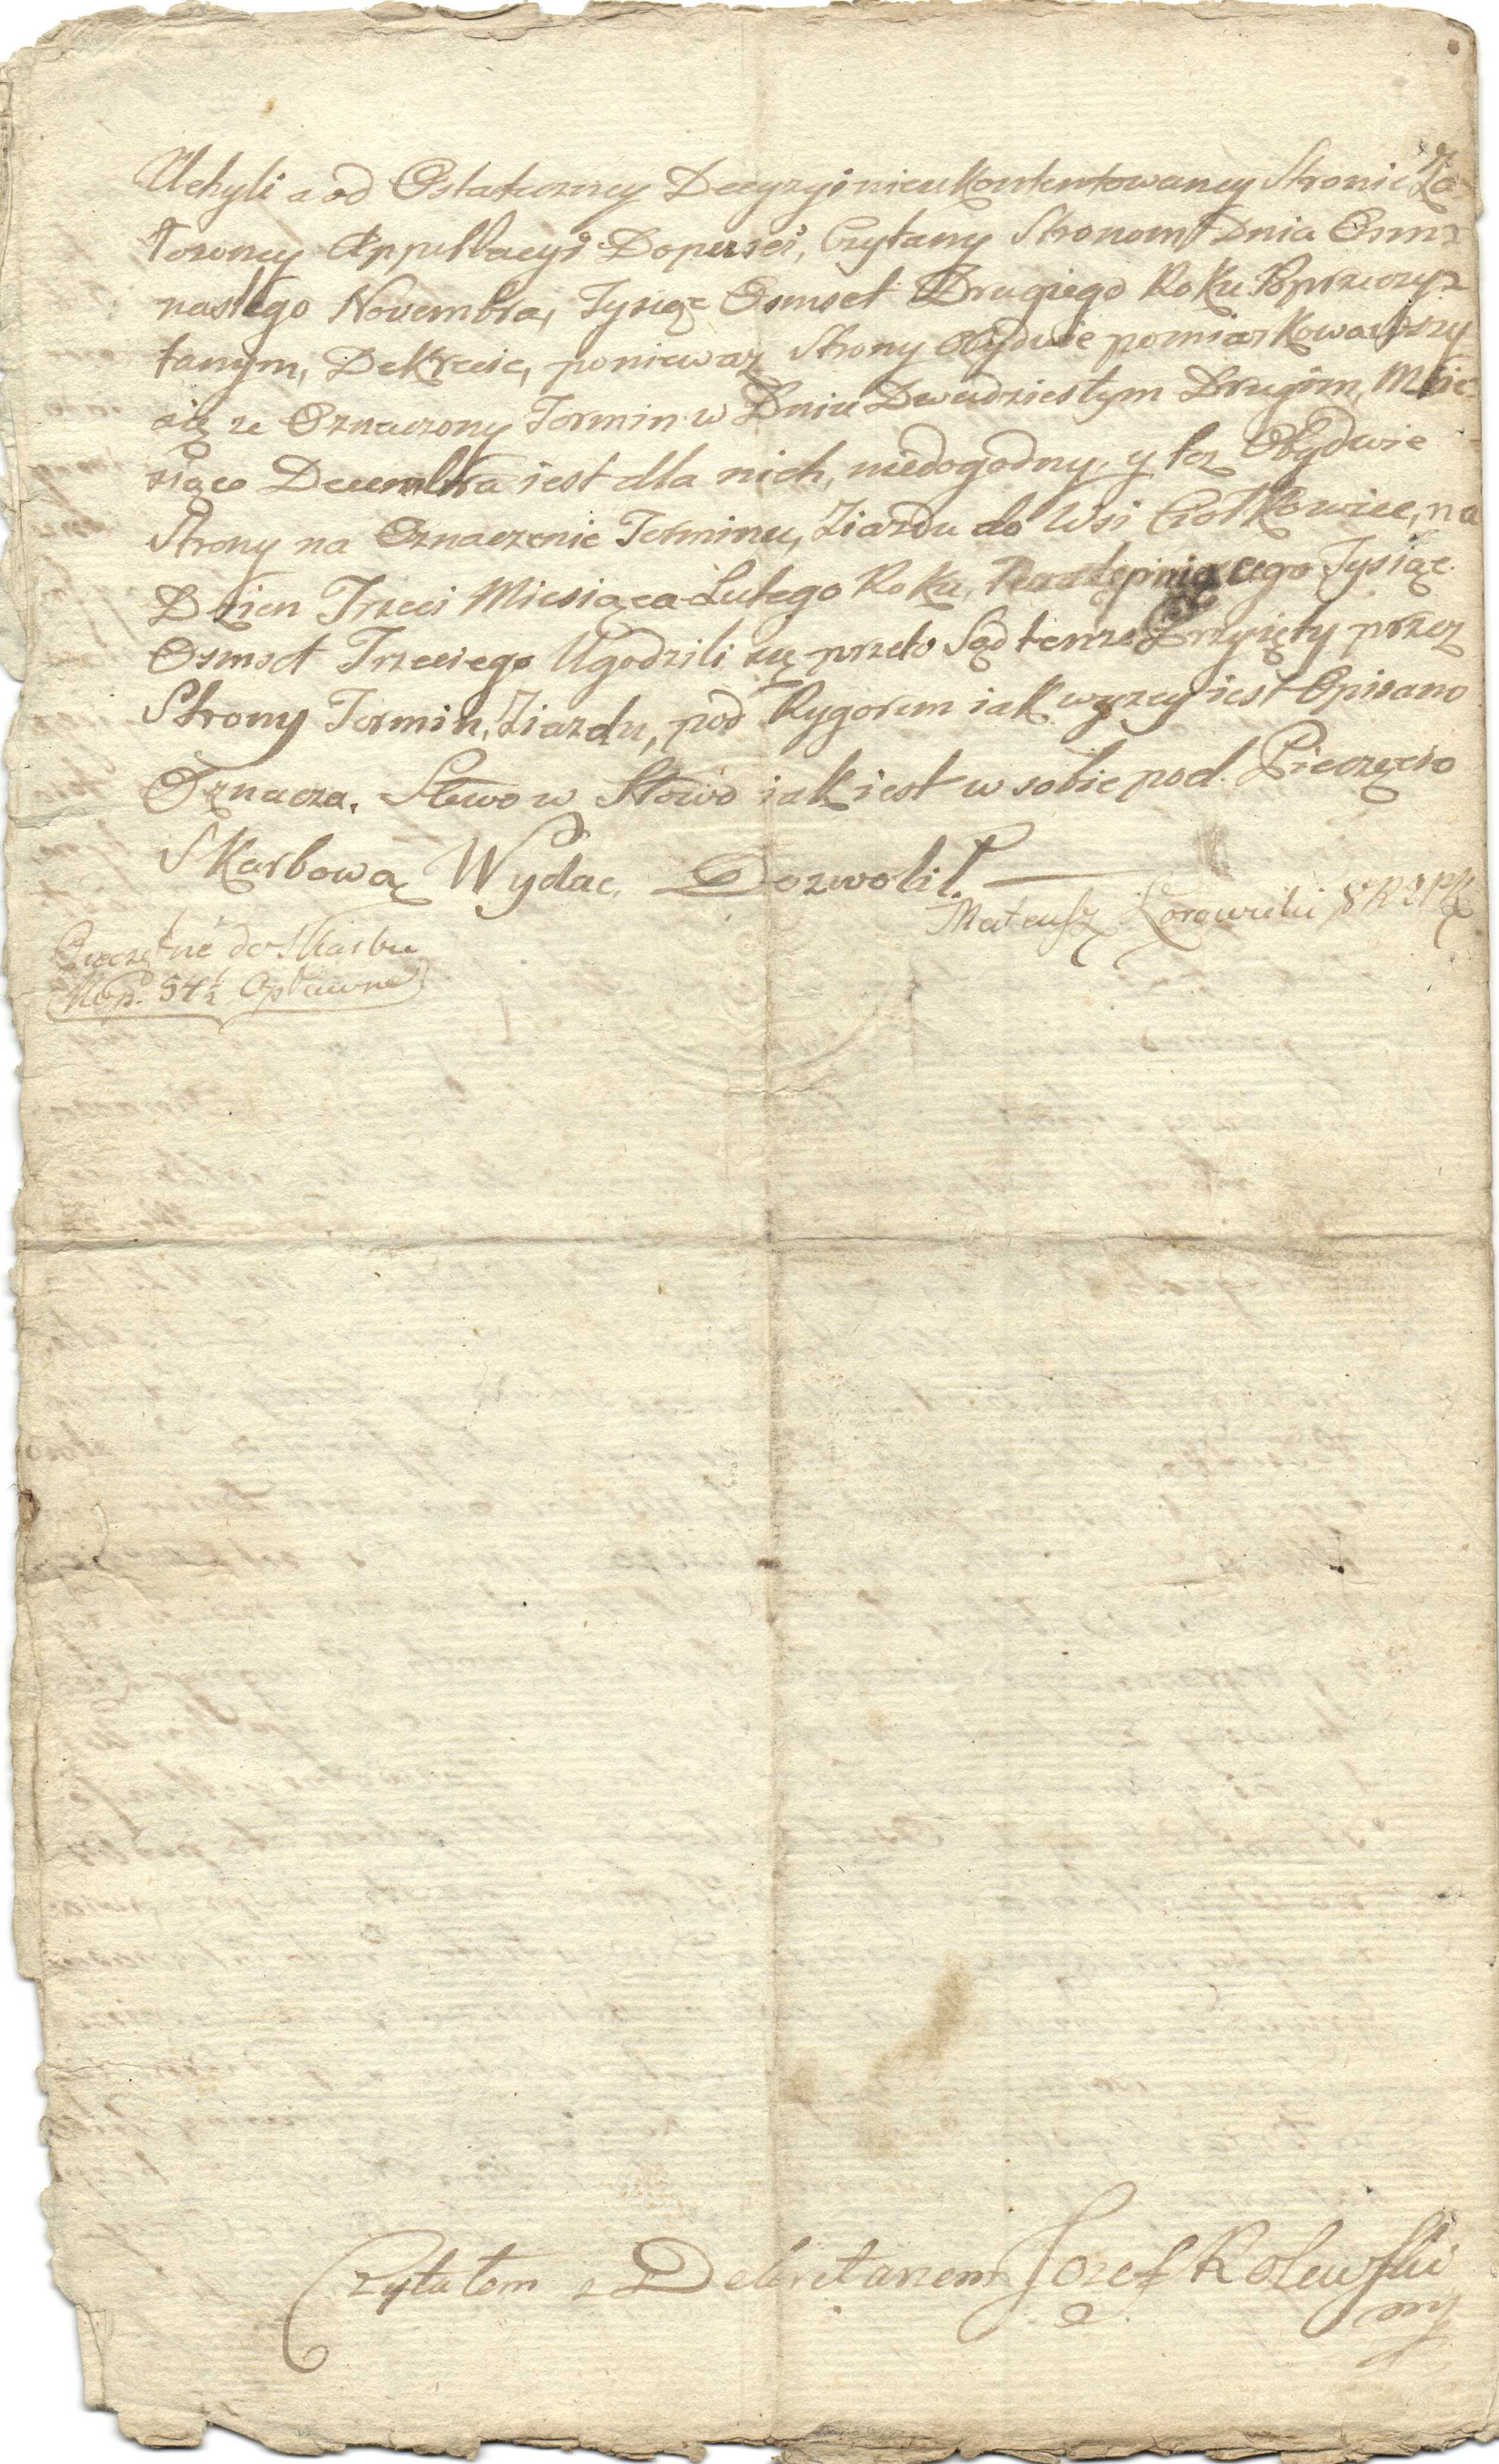 Uchyli a od Ostateczney Decyzyi nieukontentowaney Stronie Za-
łozoney Appellacyi Dopusci, Czytany Stronom Dnia Osm-
nastego Novembra, Tysiąc Osmset Drugiego Roku Poprzeczy-
tanym, Dekrecie, poniewaz Strony Obydwie pomiarkowawszy
się ze Oznaczony Termin w Dniu Dwudziestym Drugim, Mie-
siąca Decembra iest dla nich, niedogodny, y tez Obydwie
Strony na Oznaczenie Terminu, Ziazdu do Wsi Ciołkowice, na
Dzien Trzeci Miesiąca Lutego Roku, Następuiącego Tysiąc
Osmset Trzeciego Ugodzili się przeto Sąd tenze Przyięty przez
Strony Termin, Ziazdu, pod Rygorem iak wyzey iest Opisano
Oznacza. Słowo w Słowo iak iest w sobie pod Pieczęcio
Skarbową Wydac Dozwolił.
Mateusz
Pieczętne do Skarbu
Kop. 54½ Opłacone
Czytałem z Dekretarzem Jozef Kolewski
mp